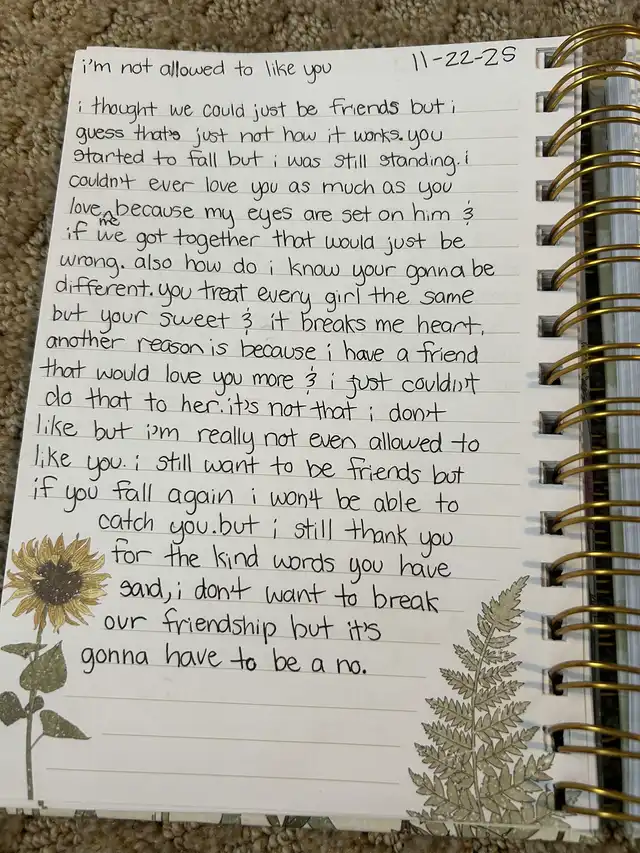 i'm not allowed to like you
11-22-25
i thought we could just be friends but i
guess thats just not how it works. you
started to fall but i was still standing. i
couldn't ever love you as much as you
love me because my eyes are set on him &
if we got together that would just be
wrong. also how do i know your gonna be
different. you treat every girl the same
but your sweet & it breaks me heart.
another reason is because i have a friend
that would love you more & i just couldn't
do that to her. it's not that i don't
like but i'm really not even allowed to
like you. i still want to be friends but
if you fall again i won't be able to
catch you. but i still thank you
for the kind words you have
said, i don't want to break
our friendship but it's
gonna have to be a no.